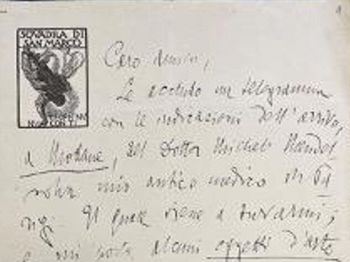 SQVADRA DI
SAN MARCO
Caro amico,
Le accludo un telegramma
con le indicazioni dell'arrivo,
a Modane, del Dottor Michele
mio antico medico in Pa
rigi. Il quale viene a trovarmi;
e mi porta alcuni oggetti d'arte